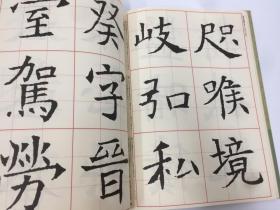 咫喉境
岐引私
癸字晉
室駕勞